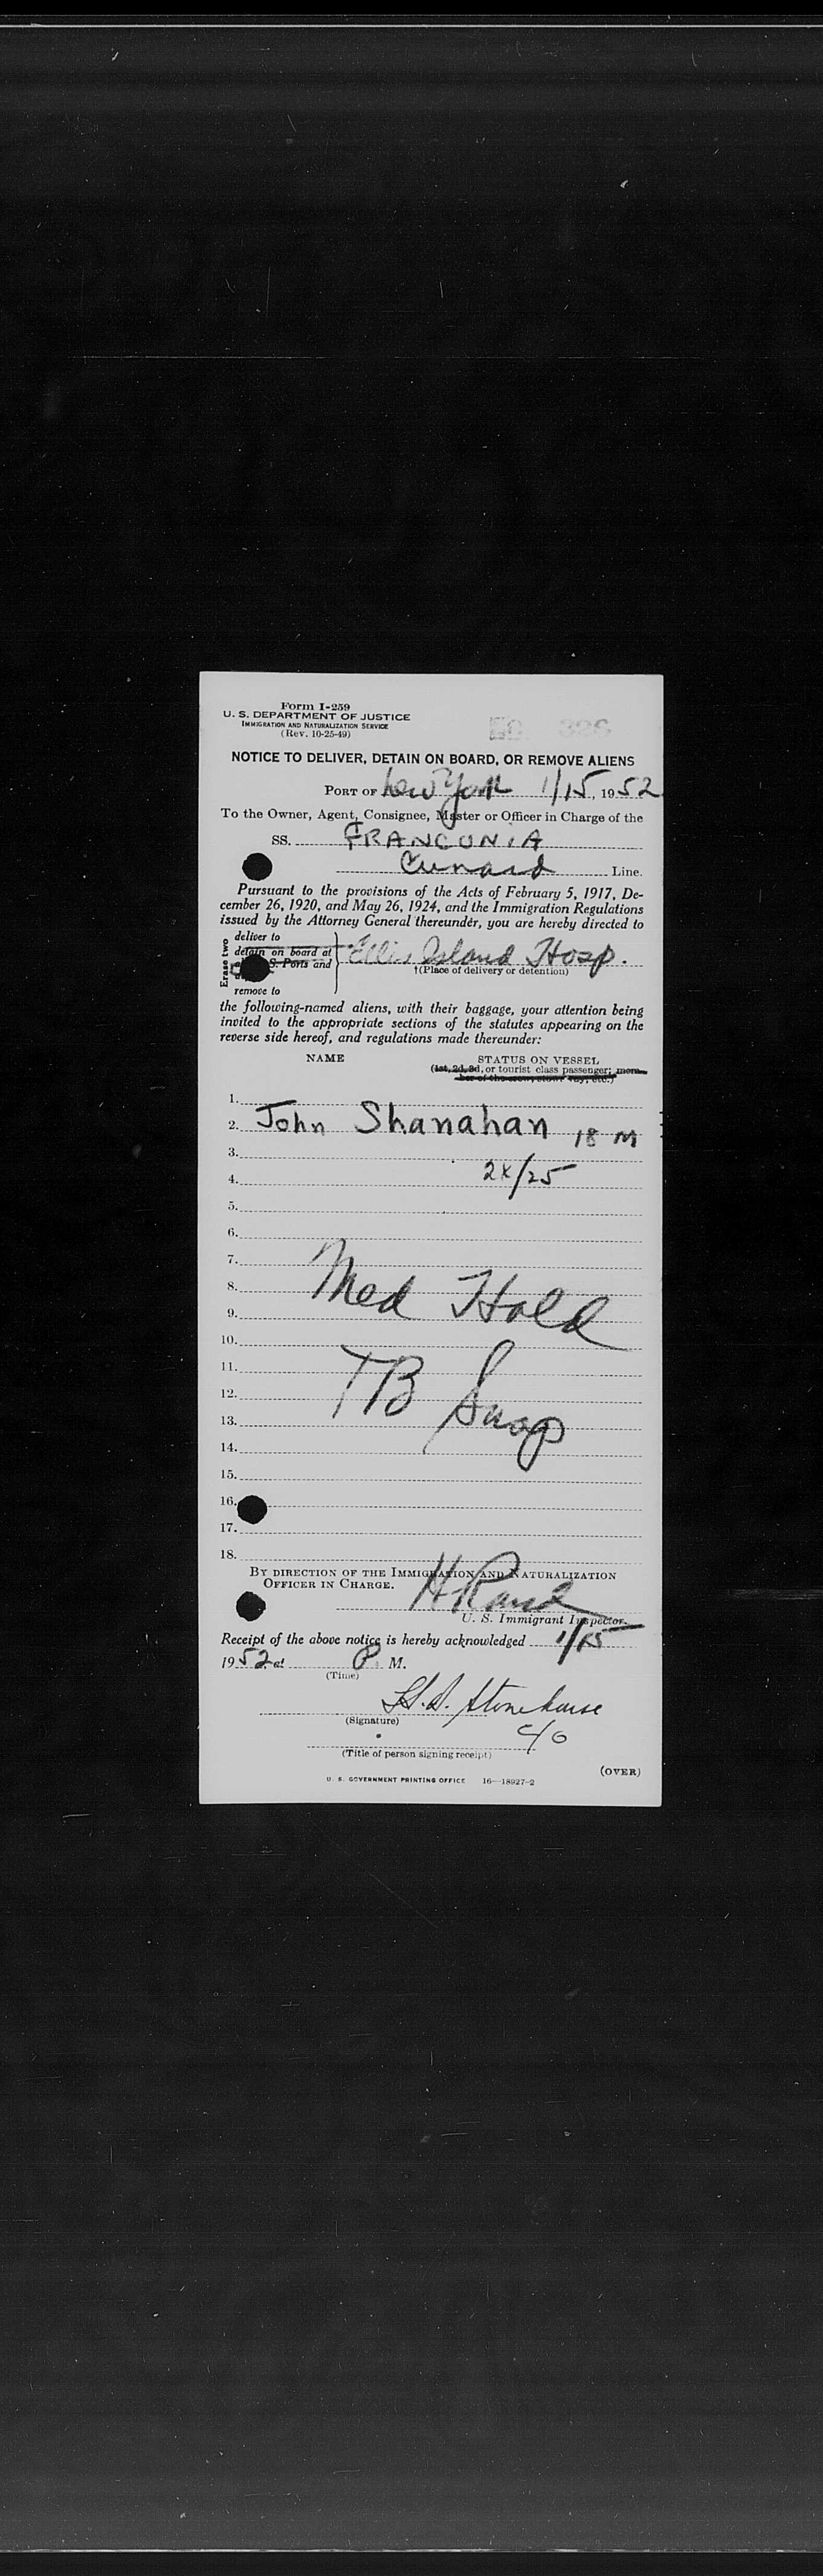 Form I-259
U. S. DEPARTMENT OF JUSTICE
IMMIGRATION AND NATURALIZATION SERVICE
(Rev. 10-25-49)
326
NOTICE TO DELIVER, DETAIN ON BOARD, OR REMOVE ALIENS
PORT OF New York 1/15, 1952
To the Owner, Agent, Consignee, Master or Officer in Charge of the
SS. FRANCONIA
Cunard Line.
Pursuant to the provisions of the Acts of February 5, 1917, De-
cember 26, 1920, and May 26, 1924, and the Immigration Regulations
issued by the Attorney General thereunder, you are hereby directed to
Erase two
deliver to
detain on board at
S. Ports and
remove to
Ellis Island Hosp.
†(Place of delivery or detention)
the following-named aliens, with their baggage, your attention being
invited to the appropriate sections of the statutes appearing on the
reverse side hereof, and regulations made thereunder:
NAME STATUS ON VESSEL
(1st, 2d, 3d, or tourist class passenger; mem-
ber of the crew, stowaway, etc.)
1.
2. John Shanahan 18 M
3.
4. 2x/25
5.
6.
7.
8. Med Hold
9.
10.
11.
12. TB Susp
13.
14.
15.
16.
17.
18.
BY DIRECTION OF THE IMMIGRATION AND NATURALIZATION
OFFICER IN CHARGE.
H Rand
U. S. Immigrant Inspector.
Receipt of the above notice is hereby acknowledged 1/15
1952 at P. M.
(Time)
Stonehouse
(Signature)
C/O
(Title of person signing receipt)
(OVER)
U. S. GOVERNMENT PRINTING OFFICE 16—18927-2